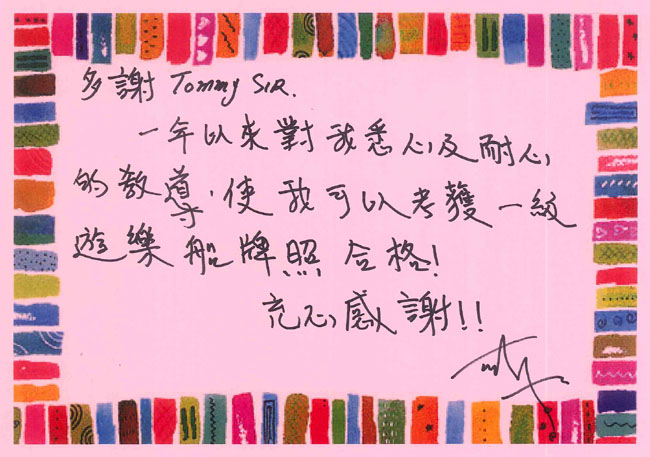 多謝 Tommy SIR.
一年以來對我悉心及耐心
的教導,使我可以考獲一級
遊樂船牌照合格!
充心感謝!!